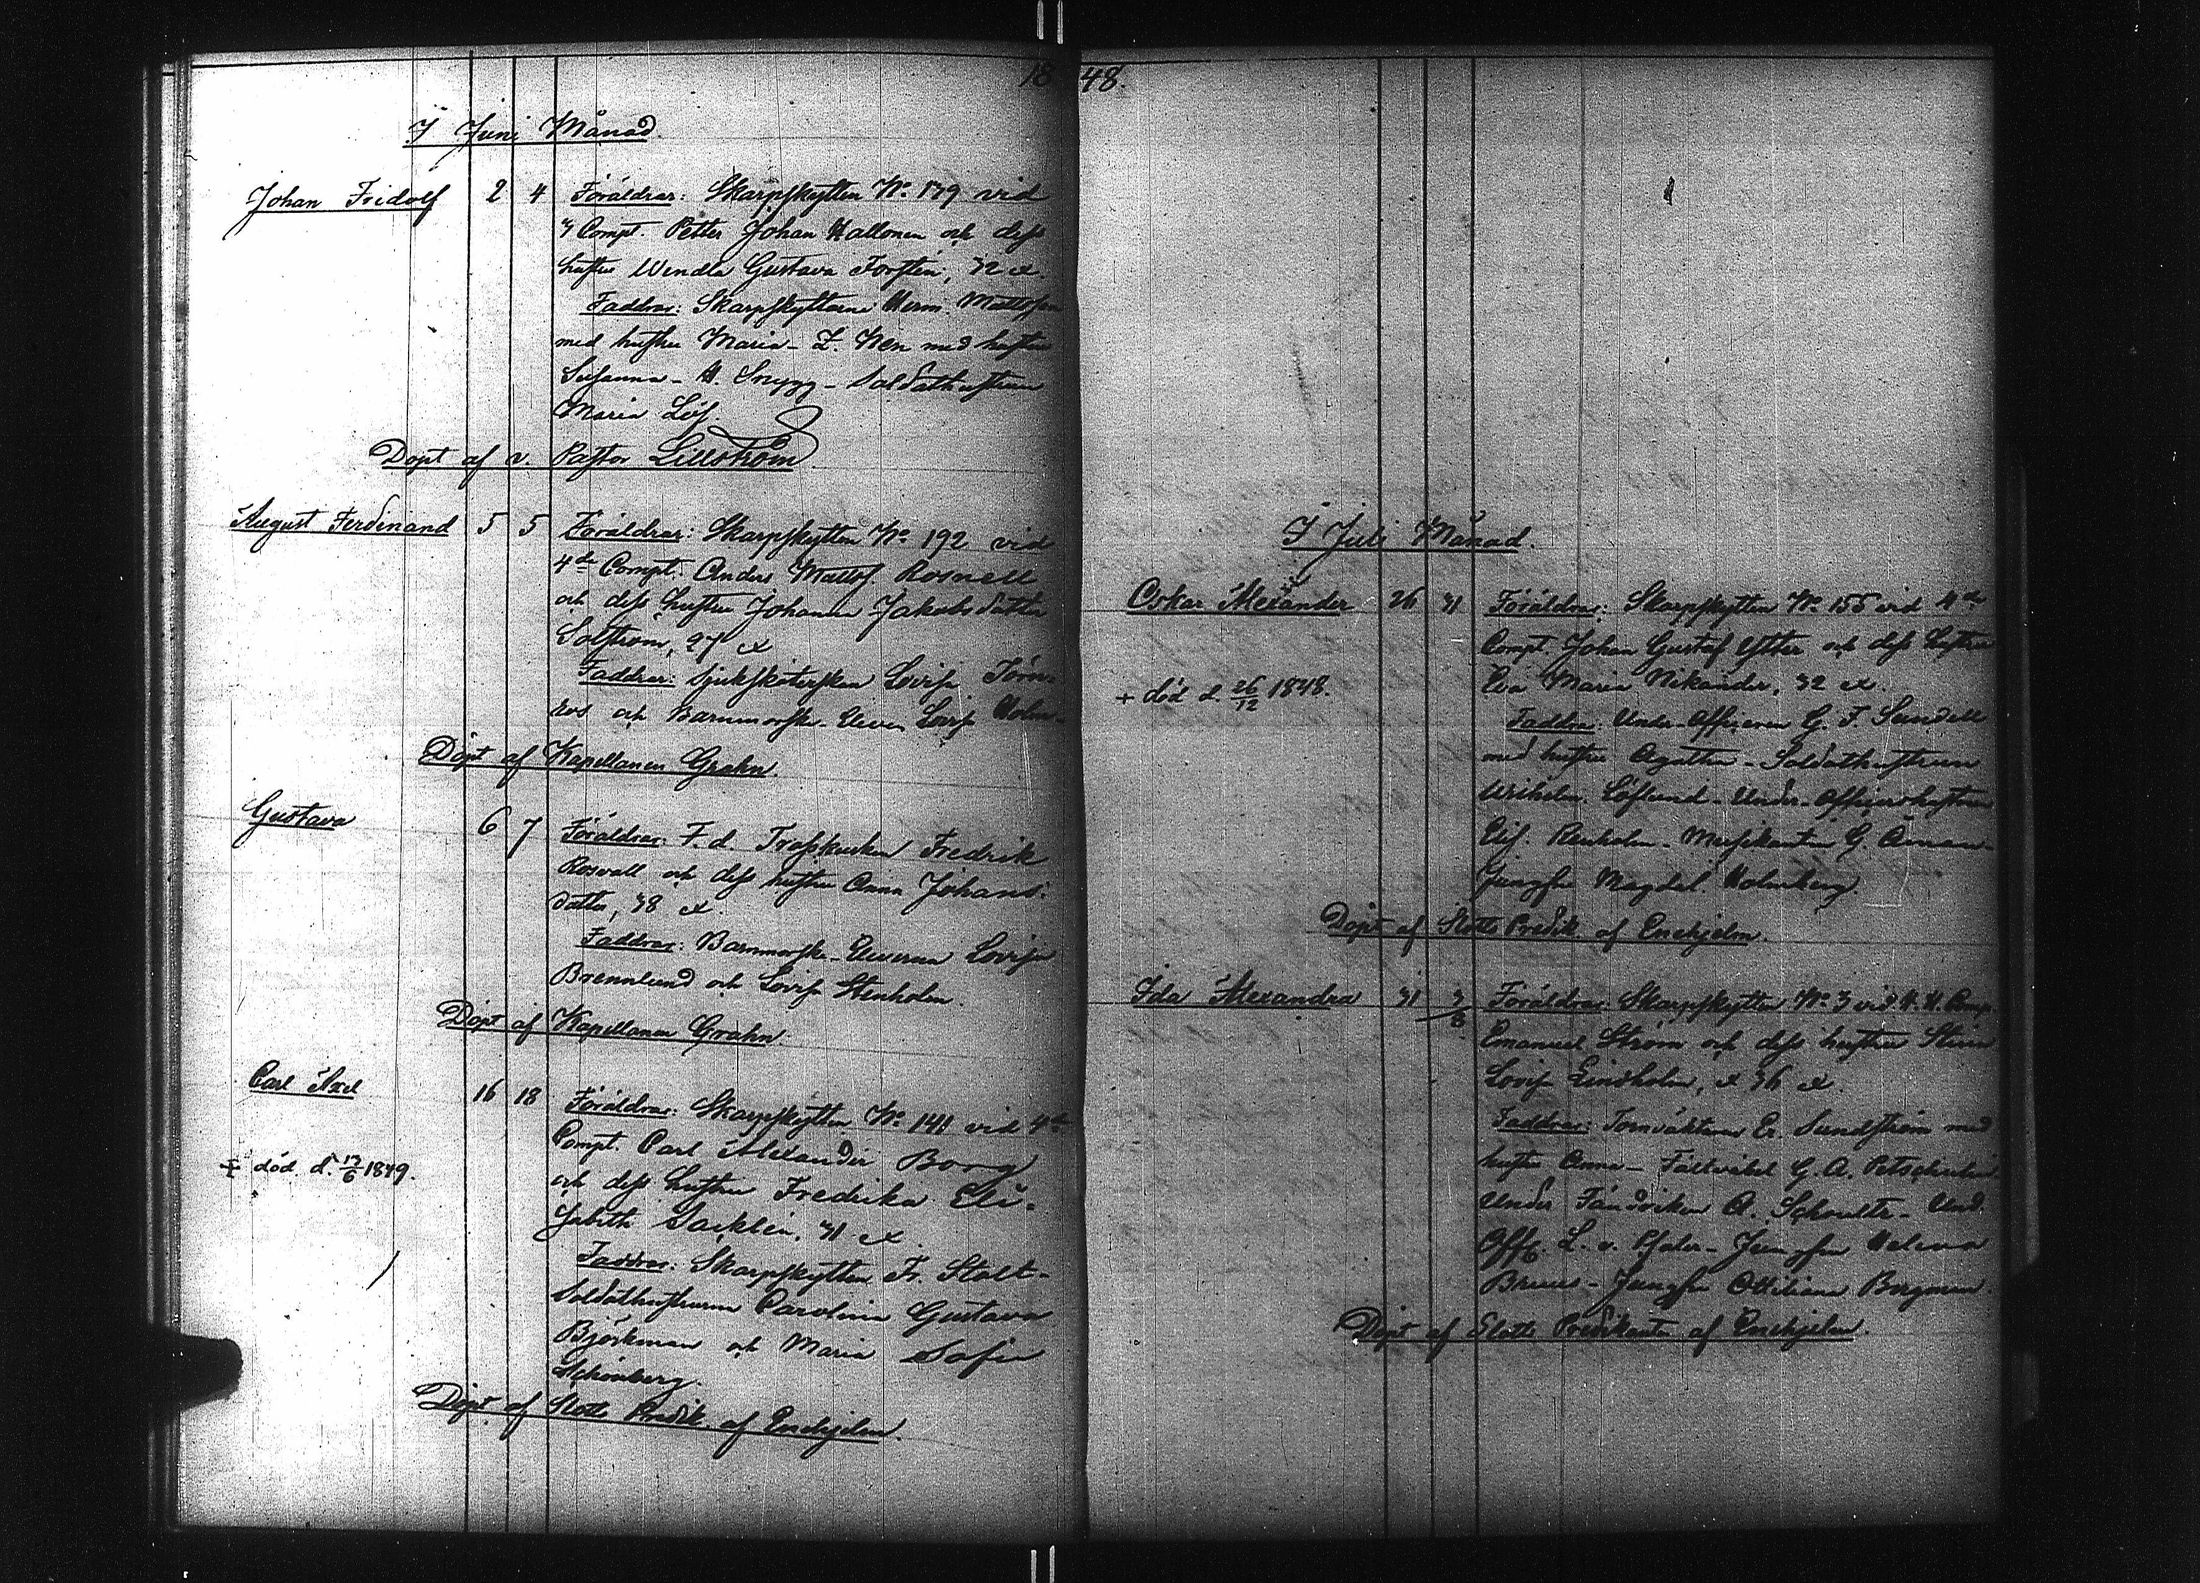 1848.
I Juni Månad.
Johan Fridolf 2 4 Föräldrar: Skarpskytten No 179 vid
3 Compt. Petter Johan Hallonen och dess
hustru Wendla Gustava Forstén, 32 år.
Faddrar: Skarpskyttarne Herm. Mattsson
med hustru Maria - Z. Wen med hustru
Susanna - H. Snygg - Soldathustrun
Maria Löf.
Döpt af v. Pastor Lillström
August Ferdinand 5 5 Föräldrar: Skarpskytten No 192 vid
4de Compt. Anders Mattss. Rosnell
och dess hustru Johanna Jakobsdotter
Solström, 27 år
Faddrar: Sjuksköterskan Lovisa Törn-
ros och Barnmorske-Eleven Lovisa Holm-
Döpt af Kapellanen Grahn.
Gustava 6 7 Föräldrar: F.d. Trosskusken Fredrik
Rosvall och dess hustru Anna Johans-
dotter, 38 år.
Faddrar: Barnmorske-Eleverna Lovisa
Brennlund och Lovisa Stenholm.
Döpt af Kapellanen Grahn.
Carl Axel 16 18 Föräldrar: Skarpskytten No 141 vid 4de
Compt. Carl Alexander Borg
+ död d. 13/6 1849.
och dess hustru Fredrika Eli-
sabeth Sacklén, 31 år.
Faddrar: Skarpskytten Fr. Stolt-
Soldathustrurna Carolina Gustava
Björkman och Maria Sofia
Schönberg.
Döpt af Slotts Predik. af Enehjelm.
I Juli Månad.
Oskar Alexander 26 31 Föräldrar: Skarpskytten No 155 vid 4de
Compt. Johan Gustaf Ytter och dess hustru
+ död d. 26/12 1848.
Eva Maria Nikander, 32 år.
Faddrar: Under-Officeren G. F. Sundell
med hustru Agatha - Soldathustrun
Wilhelm. Löflund - Under-Officershustrun
Elis. Renholm - Musikanten G. Åman-
Jungfru Magdal. Holmberg
Döpt af Slotts Predik. af Enehjelm.
Ida Alexandra 31 3/8 Föräldrar: Skarpskytten No 3 vid 4. Comp.
Emanuel Ström och dess hustru Stina
Lovisa Lindholm, 36 år.
Faddrar: Tornväktaren Er. Sundström med
hustru Anna - Fältväbel G. A.
Under Fändriken A. Schoultz - Und.
Offic. L. v. Pfaler - Jungfru Helena
Bruus - Jungfru Ottiliana Bergman.
Döpt af Slotts Predikanten af Enehjelm.